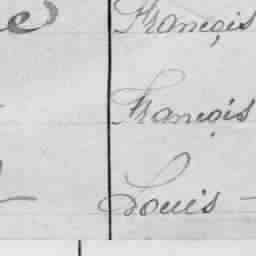 François
François
Louis -